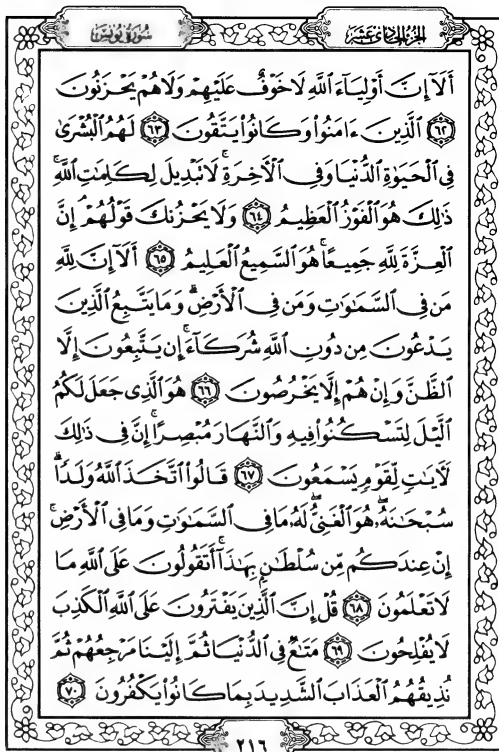 سُورَةُ يُونُسَ
الجُزءُ الحَادِى عَشَرَ
أَلَآ إِنَّ أَوْلِيَآءَ ٱللَّهِ لَا خَوْفٌ عَلَيْهِمْ وَلَا هُمْ يَحْزَنُونَ
٦٢ ٱلَّذِينَ ءَامَنُوا۟ وَكَانُوا۟ يَتَّقُونَ ٦٣ لَهُمُ ٱلْبُشْرَىٰ
فِى ٱلْحَيَوٰةِ ٱلدُّنْيَا وَفِى ٱلْأَخِرَةِۚ لَا تَبْدِيلَ لِكَلِمَٰتِ ٱللَّهِۚ
ذَٰلِكَ هُوَ ٱلْفَوْزُ ٱلْعَظِيمُ ٦٤ وَلَا يَحْزُنكَ قَوْلُهُمْۘ إِنَّ
ٱلْعِزَّةَ لِلَّهِ جَمِيعًاۚ هُوَ ٱلسَّمِيعُ ٱلْعَلِيمُ ٦٥ أَلَآ إِنَّ لِلَّهِ
مَن فِى ٱلسَّمَٰوَٰتِ وَمَن فِى ٱلْأَرْضِۗ وَمَا يَتَّبِعُ ٱلَّذِينَ
يَدْعُونَ مِن دُونِ ٱللَّهِ شُرَكَآءَۚ إِن يَتَّبِعُونَ إِلَّا
ٱلظَّنَّ وَإِنْ هُمْ إِلَّا يَخْرُصُونَ ٦٦ هُوَ ٱلَّذِى جَعَلَ لَكُمُ
ٱلَّيْلَ لِتَسْكُنُوا۟ فِيهِ وَٱلنَّهَارَ مُبْصِرًاۚ إِنَّ فِى ذَٰلِكَ
لَأَيَٰتٍ لِّقَوْمٍ يَسْمَعُونَ ٦٧ قَالُوا۟ ٱتَّخَذَ ٱللَّهُ وَلَدًاۗ
سُبْحَٰنَهُۥۖ هُوَ ٱلْغَنِىُّۖ لَهُۥ مَا فِى ٱلسَّمَٰوَٰتِ وَمَا فِى ٱلْأَرْضِۚ
إِنْ عِندَكُم مِّن سُلْطَٰنٍۭ بِهَٰذَآۚ أَتَقُولُونَ عَلَى ٱللَّهِ مَا
لَا تَعْلَمُونَ ٦٨ قُلْ إِنَّ ٱلَّذِينَ يَفْتَرُونَ عَلَى ٱللَّهِ ٱلْكَذِبَ
لَا يُفْلِحُونَ ٦٩ مَتَٰعٌ فِى ٱلدُّنْيَا ثُمَّ إِلَيْنَا مَرْجِعُهُمْ ثُمَّ
نُذِيقُهُمُ ٱلْعَذَابَ ٱلشَّدِيدَ بِمَا كَانُوا۟ يَكْفُرُونَ ٧٠
٢١٦